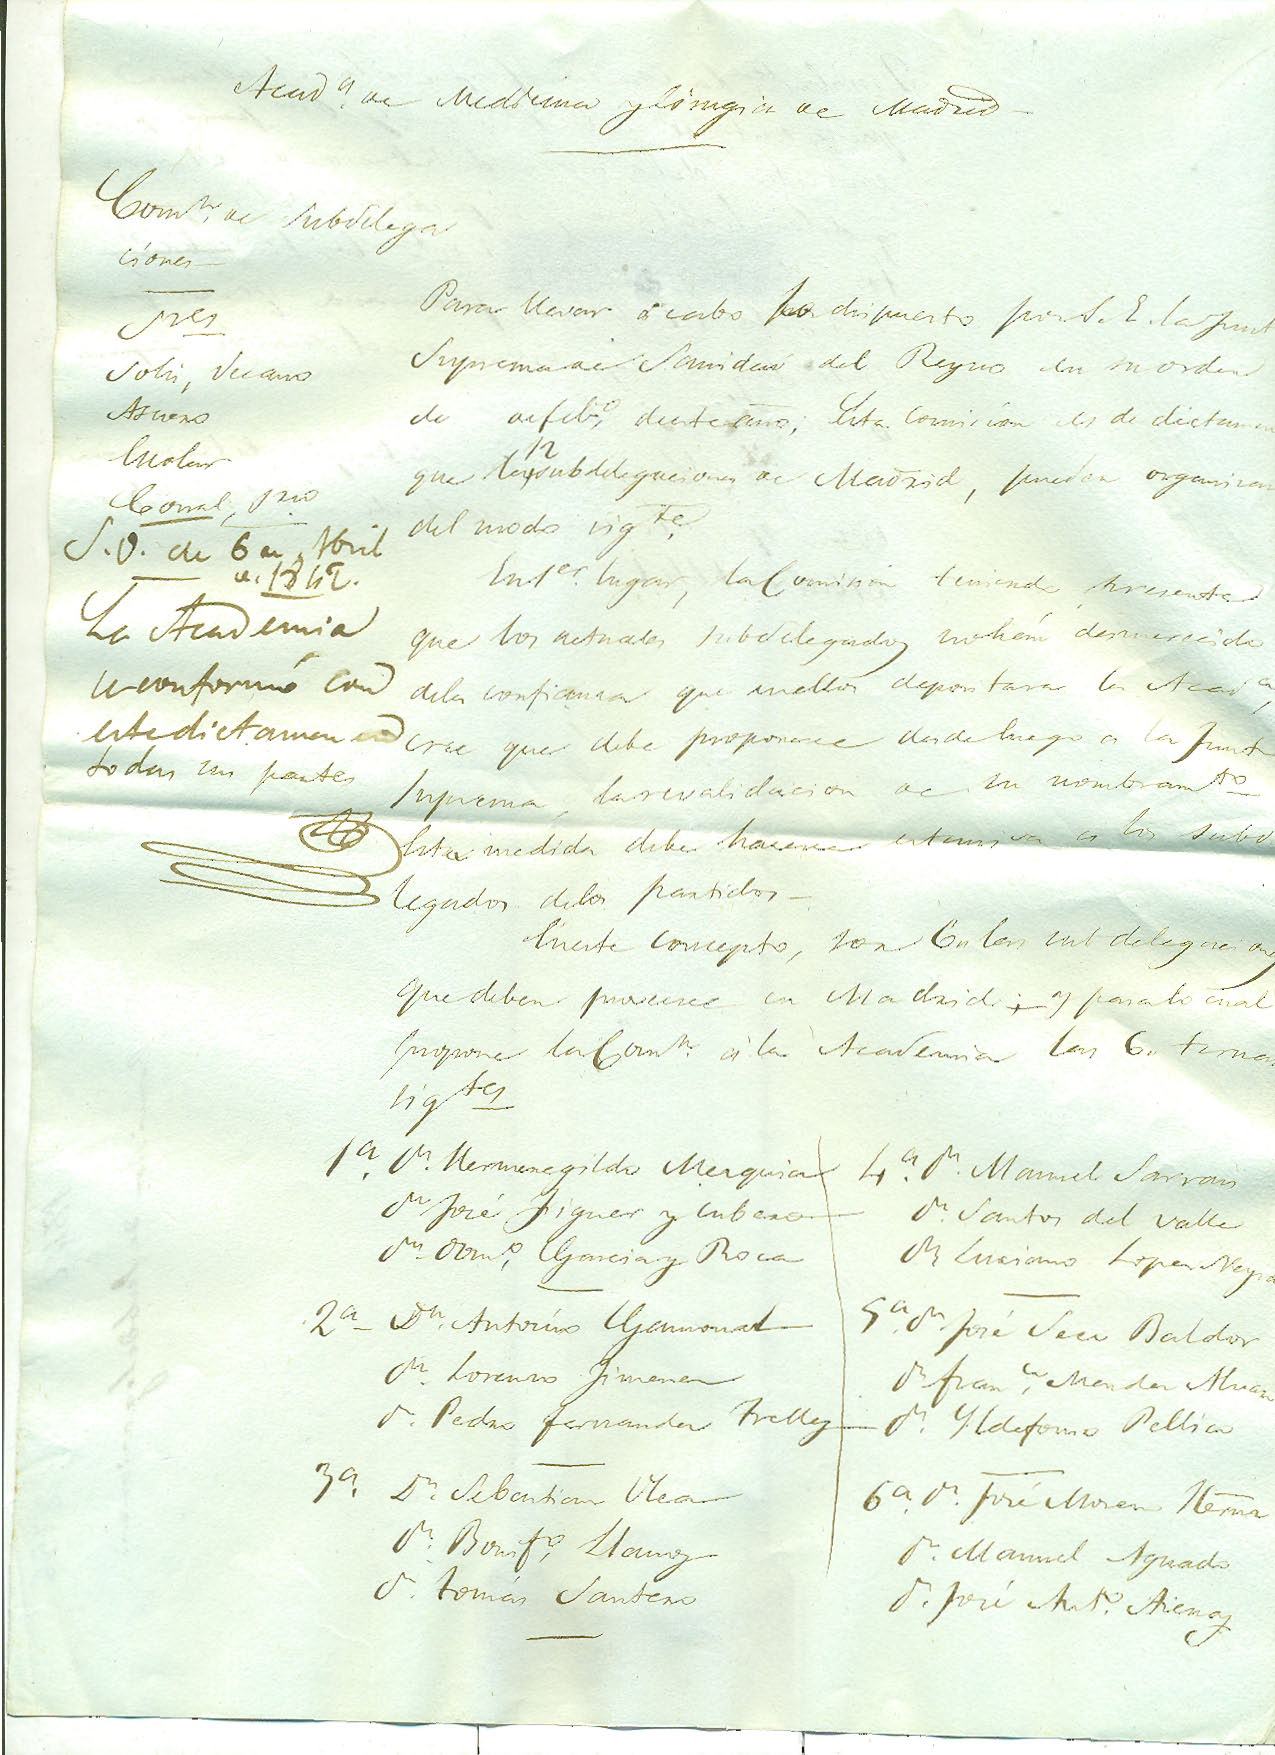 Acad.ª de Medicina y Cirugia de Madrid
Com.n de Subdelega
ciones
Sres
Solis, Decano
Asuero
Escolar
Corral, Srio
S. O. de 6 de Abril
de 1842.
La Academia
se conformó con
este dictamen en
todas sus partes
Para llevar á cabo lo dispuesto por S. E. la Junt
Suprema de Sanidad del Reyno en su orden
de de feb.o de este año; esta Comision es de dictamen
que las subdelegaciones de Madrid, puedan organizar
del modo sigte.
En 1er. lugar, la Comision teniendo presente
que los actuales subdelegados no han desmerecido
de la confianza que en ellos depositara la Acad.a,
cree que debe proponerse desde luego a la Junta
Suprema, la revalidacion de su nombramto
Esta medida debe hacerse estensiva a los subd
legados de los partidos
En este concepto, son 6 las subdelegaciones
que deben proveerse en Madrid; y para lo cual
propone la Com.n á la Academia las 6 ternas
sigtes
1ª. Dn. Hermenegildo Mezquia
Dn José Siguer y Cubero
Dn Dom.o Garcia y Roca
2ª Dn. Antonio Gamonal
Dn. Lorenzo Jimenez
D. Pedro Fernandez Trelles
3ª. Dn. Sebastian Olea
Dn. Bonif.o Llanos
D. Tomás Santero
4ª. Dn. Manuel Sarrais
Dn. Santos del Valle
Dn Luciano Lopez Neyra
5ª. Dn. José Seco Baldor
Dn Fran.co Mendez Alvaro
Dn. Yldefonso Pellico
6ª. Dn. José Moren Herna
Dn. Manuel Aguado
Dn. José Ant.o